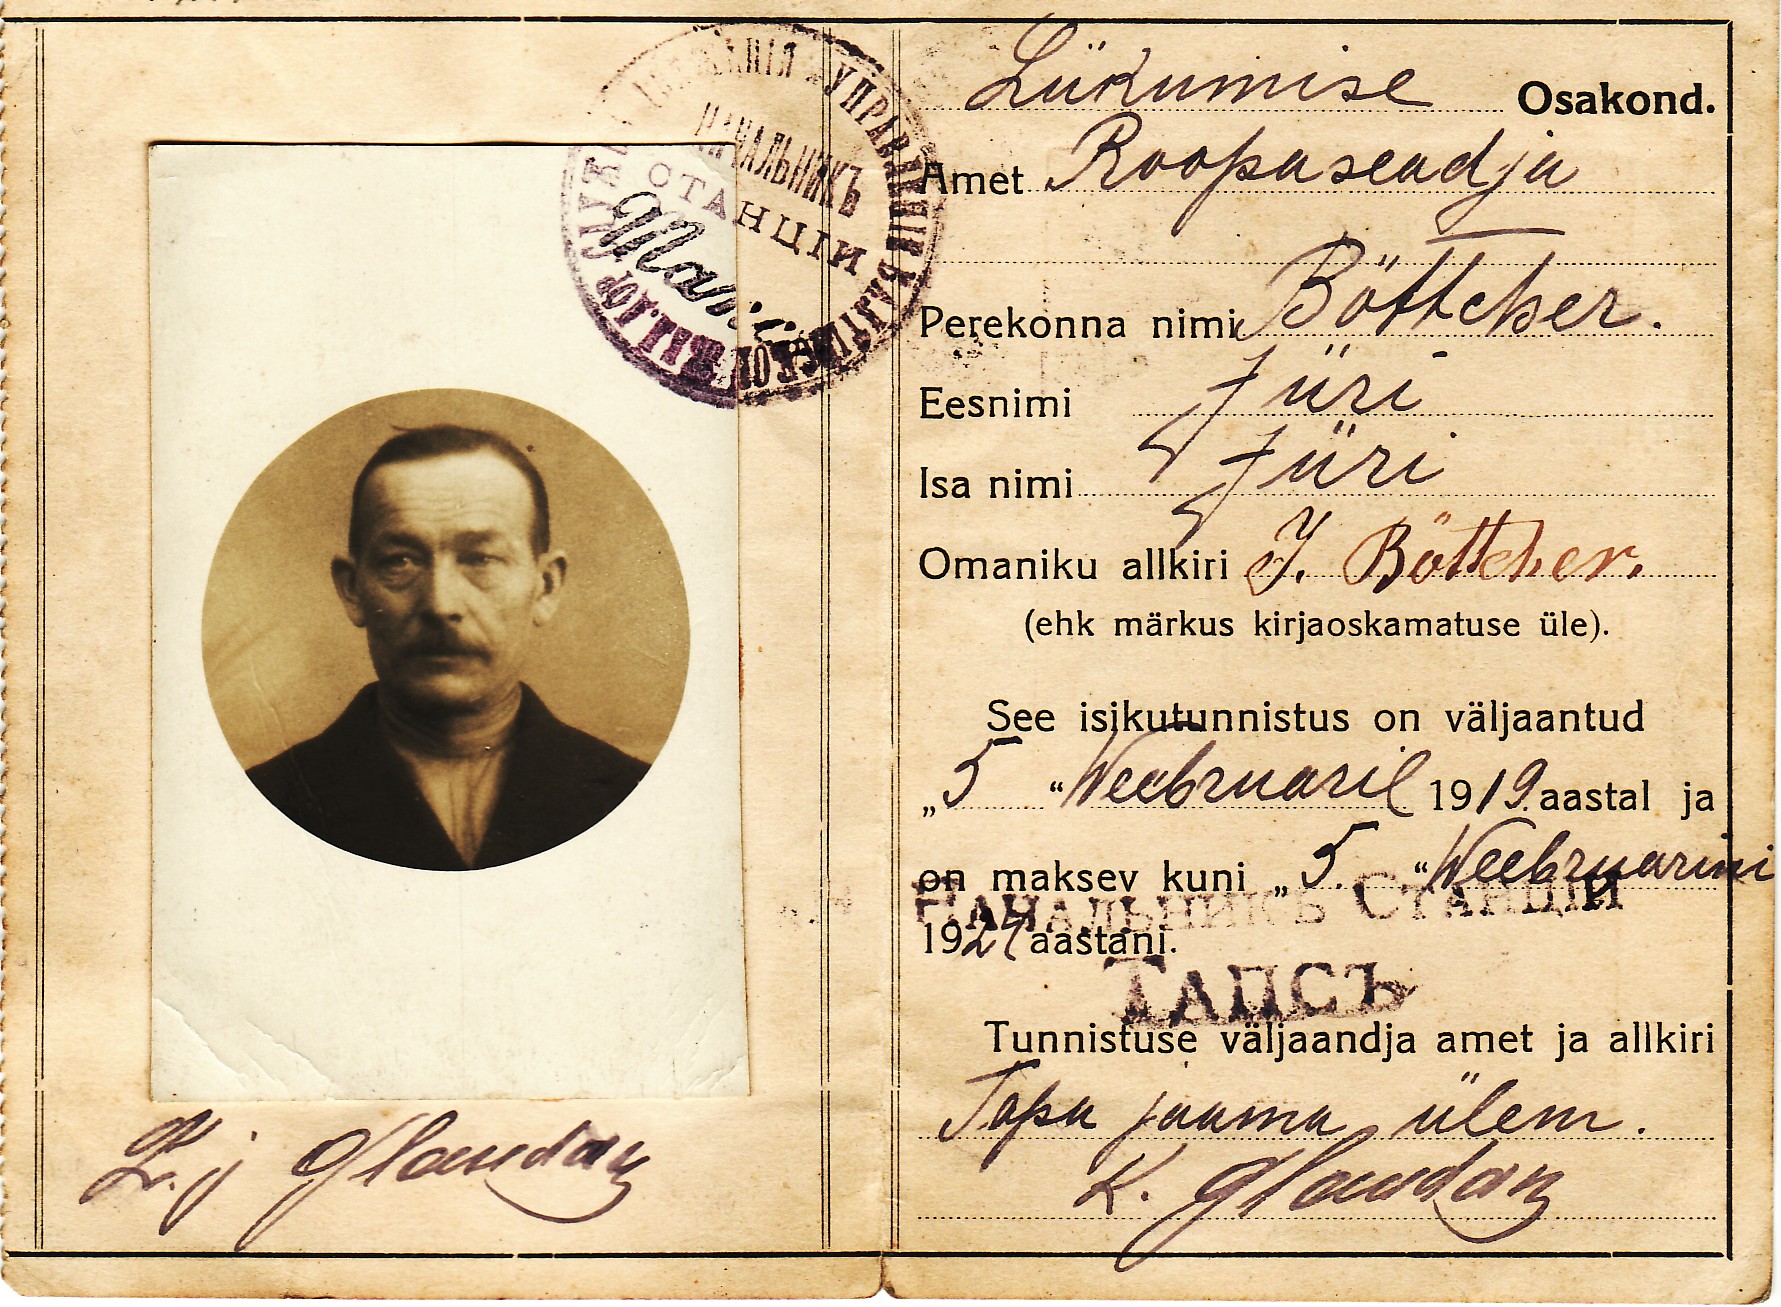 НАЧАЛЬНИКЪ
СТАНЦІИ
Liikumise Osakond.
Amet Roopaseadja
Perekonna nimi Böttcher.
Eesnimi Jüri
Isa nimi Jüri
Omaniku allkiri J. Böttcher.
(ehk märkus kirjaoskamatuse üle).
See isikutunnistus on väljaantud
„5 “ Weebruaril 1919. aastal ja
on maksev kuni „5. “ Weebruarini
НАЧАЛЬНИКЪ СТАНЦІИ
192 aastani.
ТАПСЪ
Tunnistuse väljaandja amet ja allkiri
Tapa jaama ülem.
K.